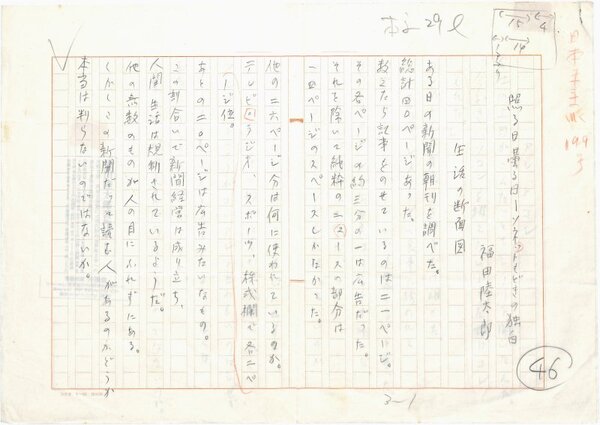 本文 29 l
15
4
14
日本未来派 199号
照る日曇る日ーソネットもどきの独白
福田陸太郎
生活の断面図
ある日の新聞の朝刊を調べた。
総計四〇ページあった。
数えたら記事をのせているのは二一ページ。
その各ページの約三分の一は広告だった。
それを除いて純粋のニュースの部分は
一四ページのスペースしかなかった。
他の二六ページ分は何に使われているのか。
テレビ・ラジオ、スポーツ、株式欄で各二ペ
ージ位。
あとの二〇ページは広告みたいなもの。
この割合いで新聞経営は成り立ち、
人間生活は規制されているようだ。
他の無数のものが人の目にふれずにある。
しかしこの新聞だって読む人があるのかどうか
本当は判らないのではないか。
46
3-1